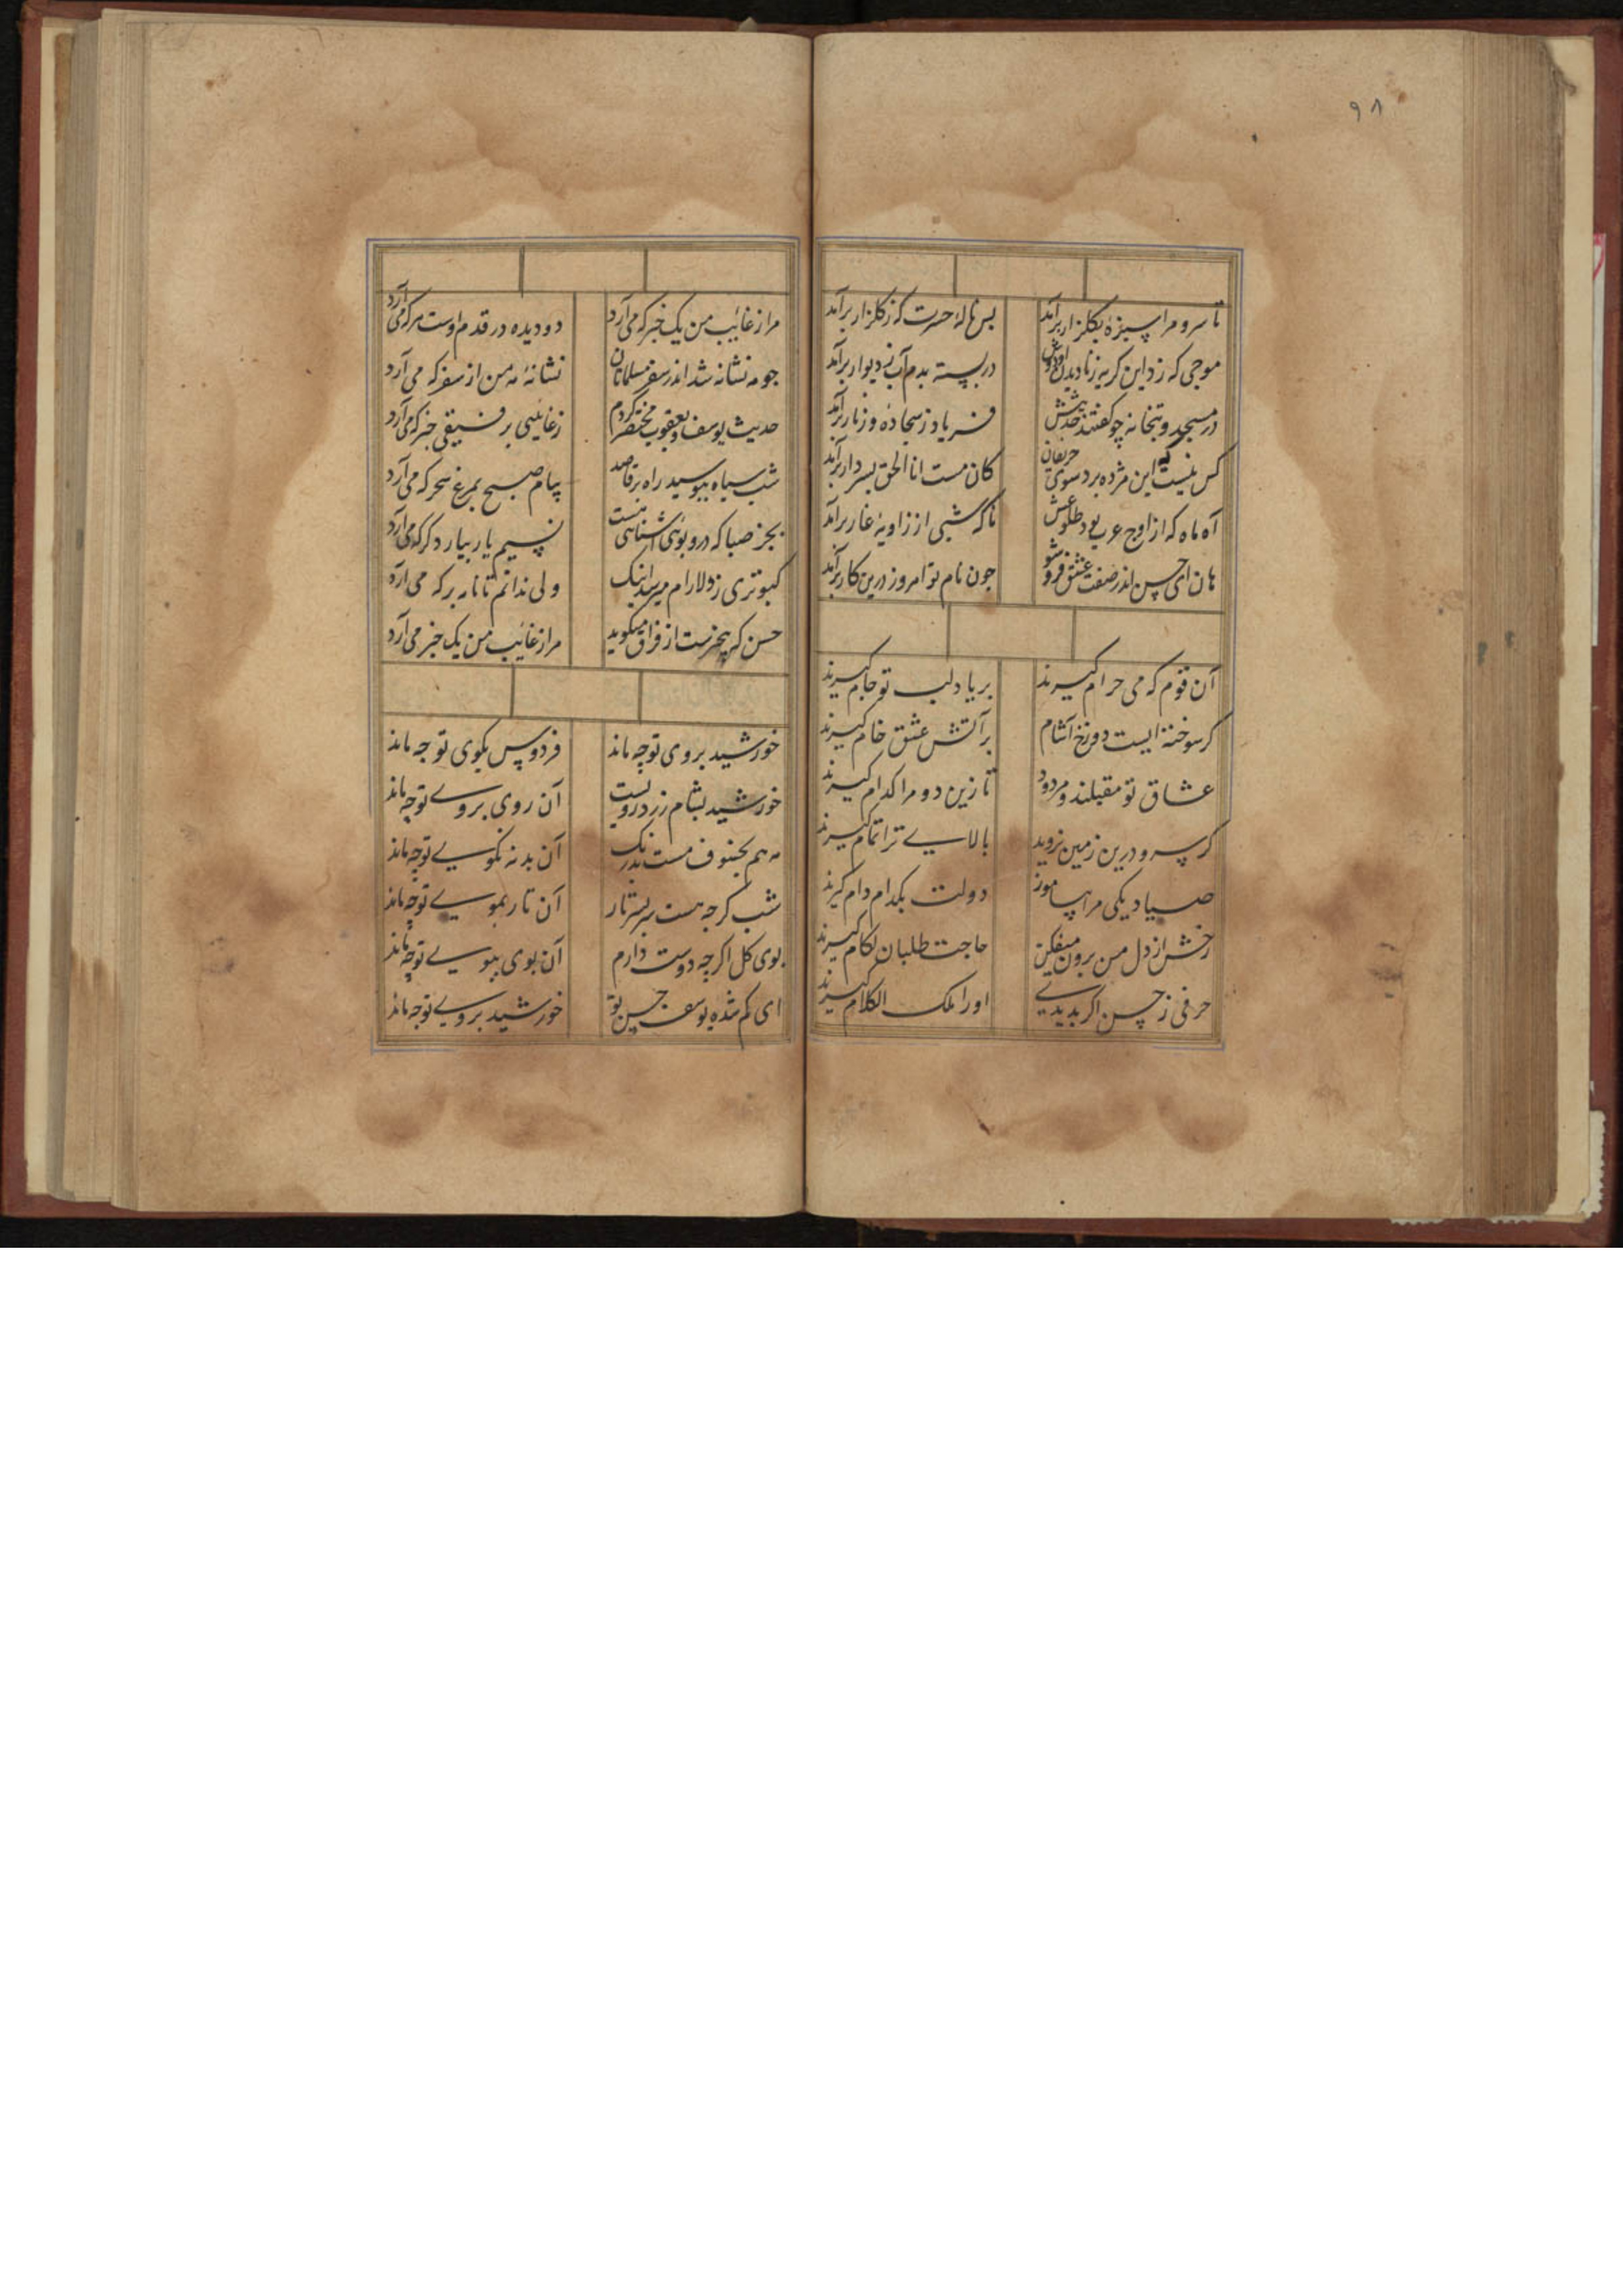 ۹۸
تا سرو مرا سبزه بگلزار برآمد
بس نالهٔ حسرت که ز گلزار برآمد
موجی که زد این گریه ز نادیدن او دوش
در بسته بدم آب ز دیوار برآمد
در مسجد و بتخانه چو گفتند حدیثش
فریاد ز سجاده و زنار برآمد
کس نیست که این مژده برد سوی حریفان
کان مست انا الحق بسر دار برآمد
آه ماه که از اوج عرب بود طلوعش
ناگه شبی از زاویهٔ غار برآمد
هان ای حسن اندر صفت عشق فرو شو
چون نام تو امروز درین کار برآمد
آن قوم که می حرام گیرند
بر یاد لب تو جام گیرند
گر سوخته‌ایست دوزخ آشام
بر آتش عشق خام گیرند
عشاق تو مقبلند و مردود
تا زین دو مرا کدام گیرند
گر سرو درین زمین نروید
بالایی ترا تمام گیرند
صیادیکی مرا بیاموز
دولت بکدام دام گیرند
رخش از دل من برون میفکن
حاجت طلبان لکام گیرند
حرفی ز حسن اگر بدیدی
او را ملک الکلام گیرند
مرا ز غایب من یک خبر که می‌آرد
دو دیده در قدم اوست هر که می‌آرد
جو مه نشانه شد اندر سفر مسلمانان
نشانهٔ مه من از سفر که می‌آرد
حدیث یوسف و یعقوب مختصر کردم
ز غایبی بر فسیقی خبر که می‌آرد
شب سیاه ببوسید راه بر قاصد
پیام صبح بمرغ سحر که می‌آرد
بجز صبا که درو بوی آشنایی هست
نسیم یار بیار دکر که می‌آرد
کبوتری ز دلارام میرسد اینک
ولی ندانم تا نامه بر که می‌آرد
حسن که بیخبرست از فراق میگوید
مرا ز غایب من یک خبر می‌آرد
خورشید بروی تو چه ماند
فردوس بکوی تو چه ماند
خورشید بشام زرد رویست
آن روی بروی تو چه ماند
مه هم بخسوف هست بد رنگ
آن بد نه نکوی تو چه ماند
شب گرچه هست سر بسر تار
آن تار بموی تو چه ماند
بوی گل اگرچه دوست دارم
آن بوی ببوی تو چه ماند
ای گم شده یوسف حسن تو
خورشید بروی تو چه ماند